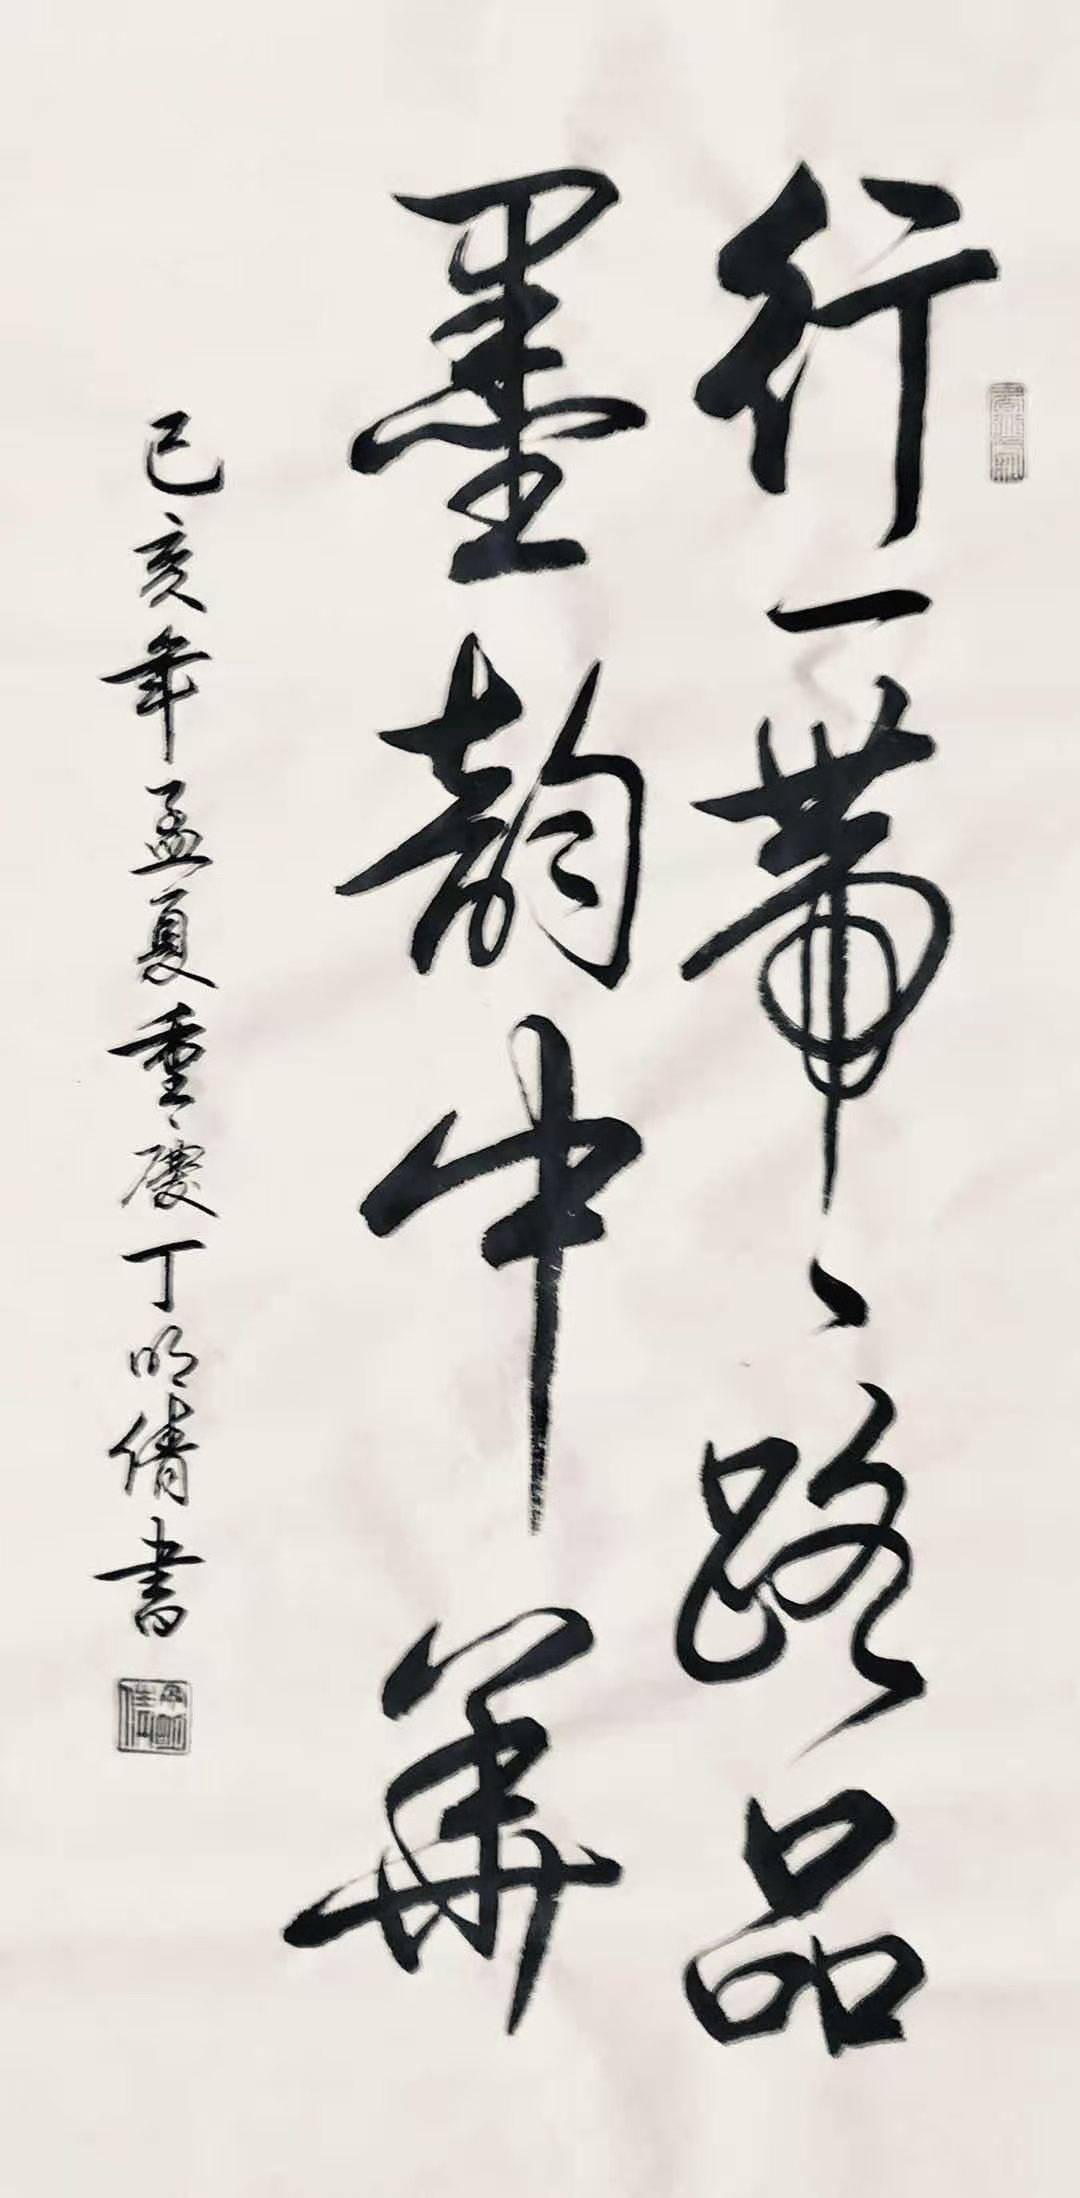 行一带一路品
墨韵中華
己亥年孟夏重慶丁明倩書